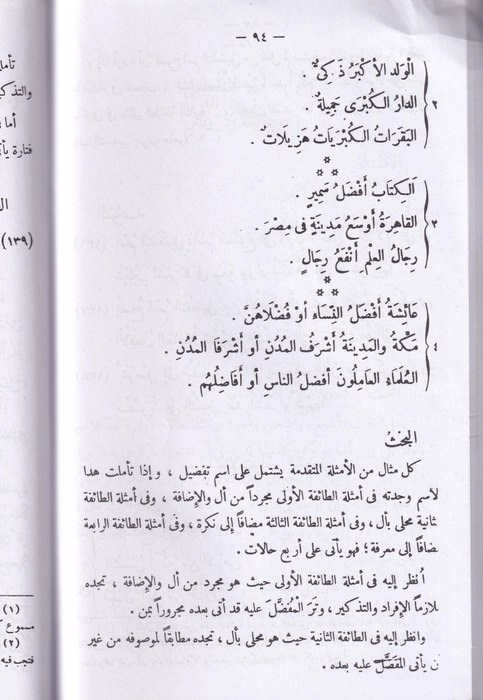 — ٩٤ —
الْوَلد الأَكْبَرُ ذَكِىٌّ .
٢ الدارُ الكُبْرَى جَمِيلةٌ .
البَقَرَاتُ الكُبْرَيَاتُ هَزِيلَاتٌ .
الكِتَابُ أَفْضَلُ سَمِيرٍ .
٣ القاهِرَةُ أَوْسَعُ مَدِينَةٍ فى مِصْرَ .
رِجَالُ العِلْمِ أَنْفَعُ رِجَالٍ .
عَائِشَةُ أَفْضَلُ النِّسَاءِ أوْ فُضْلَاهُنَّ .
٤ مَكَّةُ والمَدِينَةُ أَشْرَفُ المُدُنِ أو أَشْرَفَا المُدُنِ .
العُلَمَاءُ العَامِلُونَ أفضلُ الناسِ أو أَفَاضِلُهُم .
البحْثُ
كل مثال من الأمثلة المتقدمة يشتمل على اسم تفضيل ، وإذا تأملت هذا
لاسم وجدته فى أمثلة الطائفة الأولى مجرداً من أل والإضافة ، وفى أمثلة الطائفة
ثانية محلى بأل ، وفى أمثلة الطائفة الثالثة مضافاً إلى نكرة ، وفى أمثلة الطائفة الرابعة
ضافاً إلى معرفة ؛ فهو يأتى على أربع حالات .
اُنظر إليه فى أمثلة الطائفة الأولى حيث هو مجرد من أل والإضافة ، تجده
لازماً الإفراد والتذكير ، وتَرَ المُفَضَّلَ عليه قد أتى بعده مجروراً بمن .
وانظر إليه فى الطائفة الثانية حيث هو محلى بأل ، تجده مطابقاً لموصوفه من غير
ن يأتى المفَضَّل عليه بعده .
تأمل
والتذكير
أما
فتارة يأتى
(١٣٩)
(١)
مسموع
(٢)
فتجب فيه